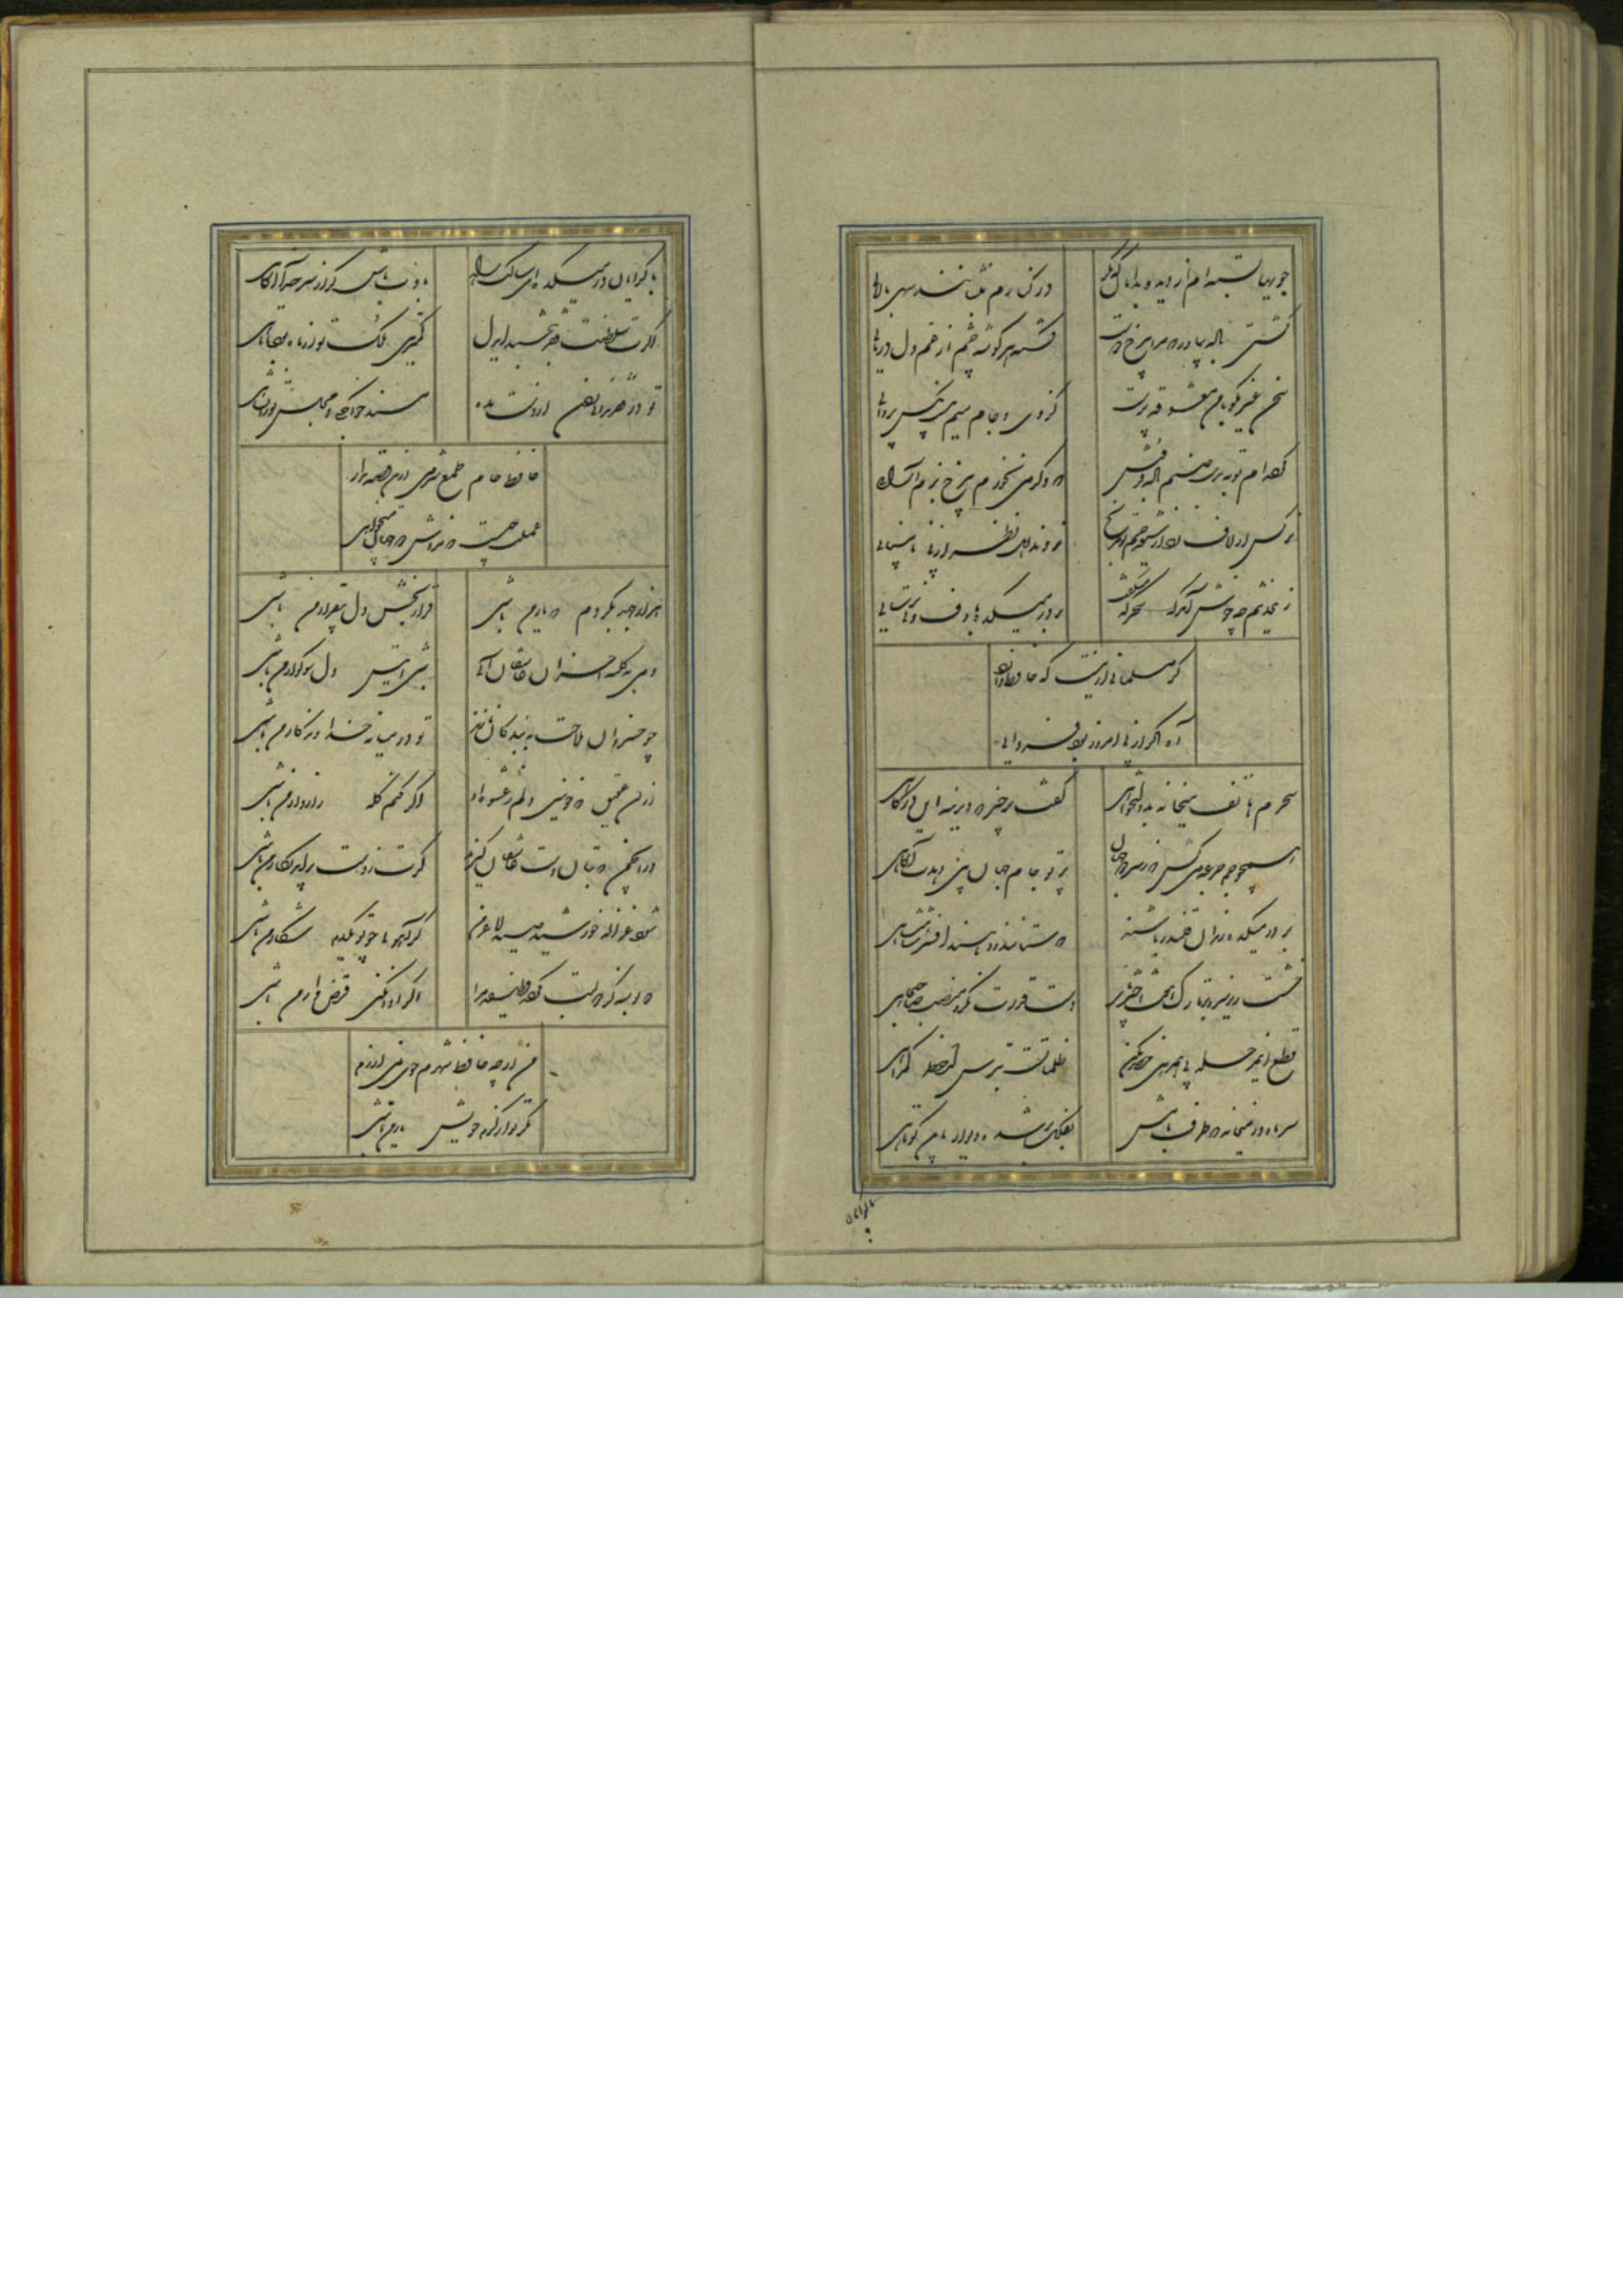 جویها بسته ام از دیده بدامان که مگر
در کنارم بنشانند سهی بالایی
کشتی باده بیاور که مرا بی رخ دوست
گشته هر گوشه چشم از غم دل دریایی
سخن غیر مگو با من معشوقه پرست
کز وی و جام میم نیست بکس پروایی
کرده ام توبه بدست صنم باده فروش
که دگر می نخورم بی رخ بزم آرایی
نرگس ار لاف زد از شیوه چشم تو مرنج
نروند اهل نظر از پی نابینایی
چه خوش آمد که سحرگه میگفت
بر در میکده با دف و نی ترسایی
گر مسلمانی ازینست که حافظ دارد
آه اگر از پی امروز بود فردایی
سحرم هاتف میخانه بدولتخواهی
گفت برخیز که دیرینه این درگاهی
همچو جم جرعه می کش که ز سر دو جهان
پرتو جام جهان بین دهدت آگاهی
بر در میکده رندان قلندر باشند
که ستانند و دهند افسر شاهنشاهی
خشت زیر سر و بر تارک هفت اختر پای
دست قدرت نگر و منصب صاحب جاهی
قطع این مرحله بی همرهی خضر مکن
ظلماتست بترس از خطر گمراهی
سر ما و در میخانه که طرف بامش
بفلک بر شد و دیوار بدین کوتاهی
با گدایان
با گدایان در میکده ای سالک راه
با ادب باش گر از سر خدا آگاهی
اگرت سلطنت فقر ببخشند ای دل
کمترین ملک تو از ماه بود تا ماهی
تو در فقر ندانی زدن از دست مده
مسند خواجگی و مجلس تورانشاهی
حافظ خام طمع شرمی ازین قصه بدار
عملت چیست که مزدش دو جهان میخواهی
هزار جهد بکردم که یار من باشی
قرار بخش دل بیقرار من باشی
دمی به کلبه احزان عاشقان آیی
شبی انیس دل سوگوار من باشی
چو خسروان ملاحت به بندگان نازند
تو در میانه خداوندگار من باشی
از آن عقیق که خونین دلم ز عشوه او
اگر کنم گله رازدار من باشی
در آن چمن که بتان دست عاشقان گیرند
گرت ز دست برآید نگار من باشی
شود غزاله خورشید صید لاغر من
گر آهویی چو تو یکدم شکار من باشی
سه بوسه کز دو لبت کرده وظیفه مرا
اگر ادا نکنی قرض دار من باشی
من ارچه حافظ شهرم جوی نمی ارزم
مگر تو از کرم خویش یار من باشی